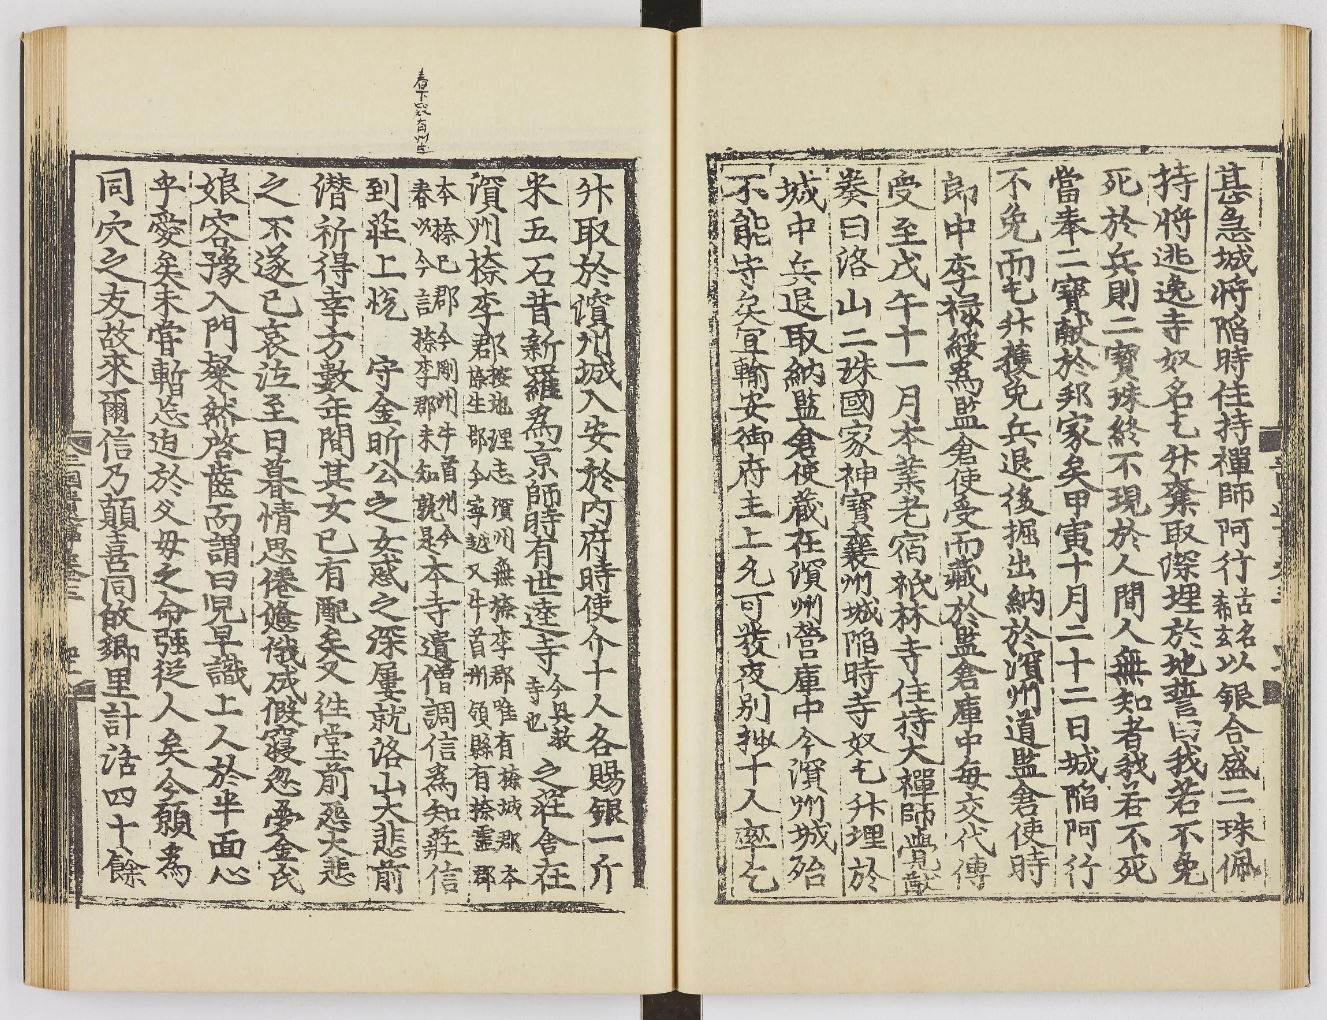 甚急城將陷時住持禪師阿行古名希玄以銀合盛二珠佩
持將逃逸寺奴名乞升棄取深埋於地誓曰我若不免
死於兵則二寶珠終不現於人間人無知者我若不死
當奉二寶獻於邦家矣甲寅十月二十二日城陷阿行
不免而乞升獲免兵退後掘出納於溟州道監倉使時
郎中李祿綏爲監倉使受而藏於監倉庫中每交代傳
受至戊午十一月本業老宿祇林寺住持大禪師覺猷
奏曰洛山二珠國家神寶襄州城陷時寺奴乞升埋於
城中兵退取納監倉使藏在溟州營庫中今溟州城殆
不能守矣宜輸安御府主上允可發夜別抄十人率乞
升取於溟州城入安於內府時使介十人各賜銀一斤
米五石昔新羅爲京師時有世逵寺今興教寺也之莊舍在
溟州㮈李郡按地理志溟州無㮈李郡唯有㮈城郡本
㮈生郡今寧越又牛首州領縣有㮈靈郡
本㮈已郡今剛州牛首州今
春州今言㮈李郡未知孰是本寺遣僧調信爲知莊信
到莊上悅 守金昕公之女惑之深屢就洛山大悲前
潛祈得幸方數年間其女已有配矣又往堂前怨大悲
之不遂已哀泣至日暮情思倦憊俄成假寢忽夢金氏
娘容豫入門粲然啓齒而謂曰兒早識上人於半面心
乎愛矣未嘗暫忘迫於父母之命强從人矣今願爲
同穴之友故來爾信乃顚喜同故鄉里計活四十餘